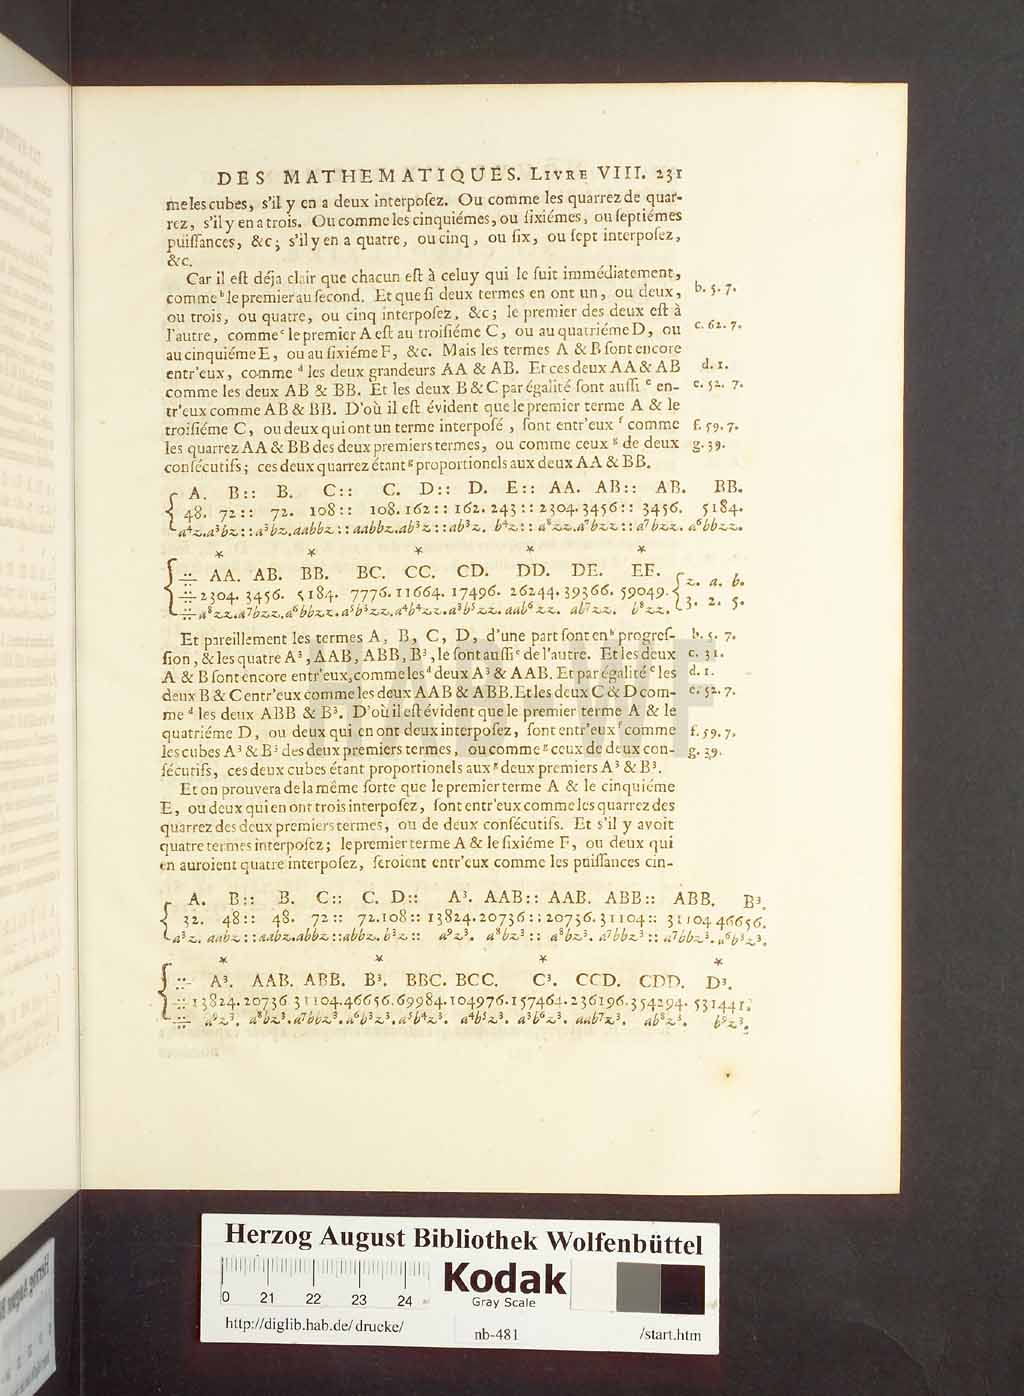 DES MATHEMATIQUES. LIVRE VIII. 231
me les cubes, s'il y en a deux interposez. Ou comme les quarrez de quar-
rez, s'il y en a trois. Ou comme les cinquiémes, ou sixiémes, ou septiémes
puissances, &c; s'il y en a quatre, ou cinq, ou six, ou sept interposez,
&c.
Car il est déja clair que chacun est à celuy qui le suit immédiatement,
comme ᵇ le premier au second. Et que si deux termes en ont un, ou deux, b. 5. 7.
ou trois, ou quatre, ou cinq interposez, &c; le premier des deux est à
l'autre, comme ᶜ le premier A est au troisiéme C, ou au quatriéme D, ou c. 62. 7.
au cinquiéme E, ou au sixiéme F, &c. Mais les termes A & B sont encore
entr'eux, comme ᵈ les deux grandeurs AA & AB. Et ces deux AA & AB d. 1.
comme les deux AB & BB. Et les deux B & C par égalité sont aussi ᵉ en- e. 52. 7.
tr'eux comme AB & BB. D'où il est évident que le premier terme A & le
troisiéme C, ou deux qui ont un terme interposé, sont entr'eux ᶠ comme f. 59. 7.
les quarrez AA & BB des deux premiers termes, ou comme ceux ᵍ de deux g. 39.
consécutifs; ces deux quarrez étant ᵍ proportionels aux deux AA & BB.
A. B :: B. C :: C. D :: D. E :: AA. AB :: AB. BB.
48. 72 :: 72. 108 :: 108. 162 :: 162. 243 :: 2304. 3456 :: 3456. 5184.
a⁴z. a³bz :: a³bz. aabbz :: aabbz. ab³z :: ab³z. b⁴z :: a⁸zz. a⁷bzz :: a⁷bzz. a⁶bbzz.
* * * * *
∺ AA. AB. BB. BC. CC. CD. DD. DE. EE. z. a. b.
∺ 2304. 3456. 5184. 7776. 11664. 17496. 26244. 39366. 59049. 3. 2. 5.
∺ a⁸zz. a⁷bzz. a⁶bbzz. a⁵b³zz. a⁴b⁴zz. a³b⁵zz. aab⁶zz. ab⁷zz. b⁸zz.
Et pareillement les termes A, B, C, D, d'une part sont en ᵇ progres- b. 5. 7.
sion, & les quatre A³, AAB, ABB, B³, le sont aussi ᶜ de l'autre. Et les deux c. 31.
A & B sont encore entr'eux, comme les ᵈ deux A³ & AAB. Et par égalité ᵉ les d. 1.
deux B & C entr'eux comme les deux AAB & ABB. Et les deux C & D com- e. 52. 7.
me ᵈ les deux ABB & B³. D'où il est évident que le premier terme A & le
quatriéme D, ou deux qui en ont deux interposez, sont entr'eux ᶠ comme f. 59. 7.
les cubes A³ & B³ des deux premiers termes, ou comme ᵍ ceux de deux con- g. 39.
sécutifs, ces deux cubes étant proportionels aux ᵍ deux premiers A³ & B³.
Et on prouvera de la même sorte que le premier terme A & le cinquiéme
E, ou deux qui en ont trois interposez, sont entr'eux comme les quarrez des
quarrez des deux premiers termes, ou de deux consécutifs. Et s'il y avoit
quatre termes interposez; le premier terme A & le sixiéme F, ou deux qui
en auroient quatre interposez, seroient entr'eux comme les puissances cin-
A. B :: B. C :: C. D :: A³. AAB :: AAB. ABB :: ABB. B³.
32. 48 :: 48. 72 :: 72. 108 :: 13824. 20736 :: 20736. 31104 :: 31104 46656.
a³z. aabz :: aabz. abbz :: abbz. b³z :: a⁹z³. a⁸bz³ :: a⁸bz³. a⁷bbz³ :: a⁷bbz³. a⁶b³z³.
* * * *
∺ A³. AAB. ABB. B³. BBC. BCC. C³. CCD. CDD. D³.
∺ 13824. 20736. 31104. 46656. 69984. 104976. 157464. 236196. 354294. 531441.
∺ a⁹z³. a⁸bz³. a⁷bbz³. a⁶b³z³. a⁵b⁴z³. a⁴b⁵z³. a³b⁶z³. aab⁷z³. ab⁸z³. b⁹z³.
Herzog August Bibliothek Wolfenbüttel
0 21 22 23 24
Kodak
Gray Scale
http://diglib.hab.de/drucke/ nb-481 /start.htm